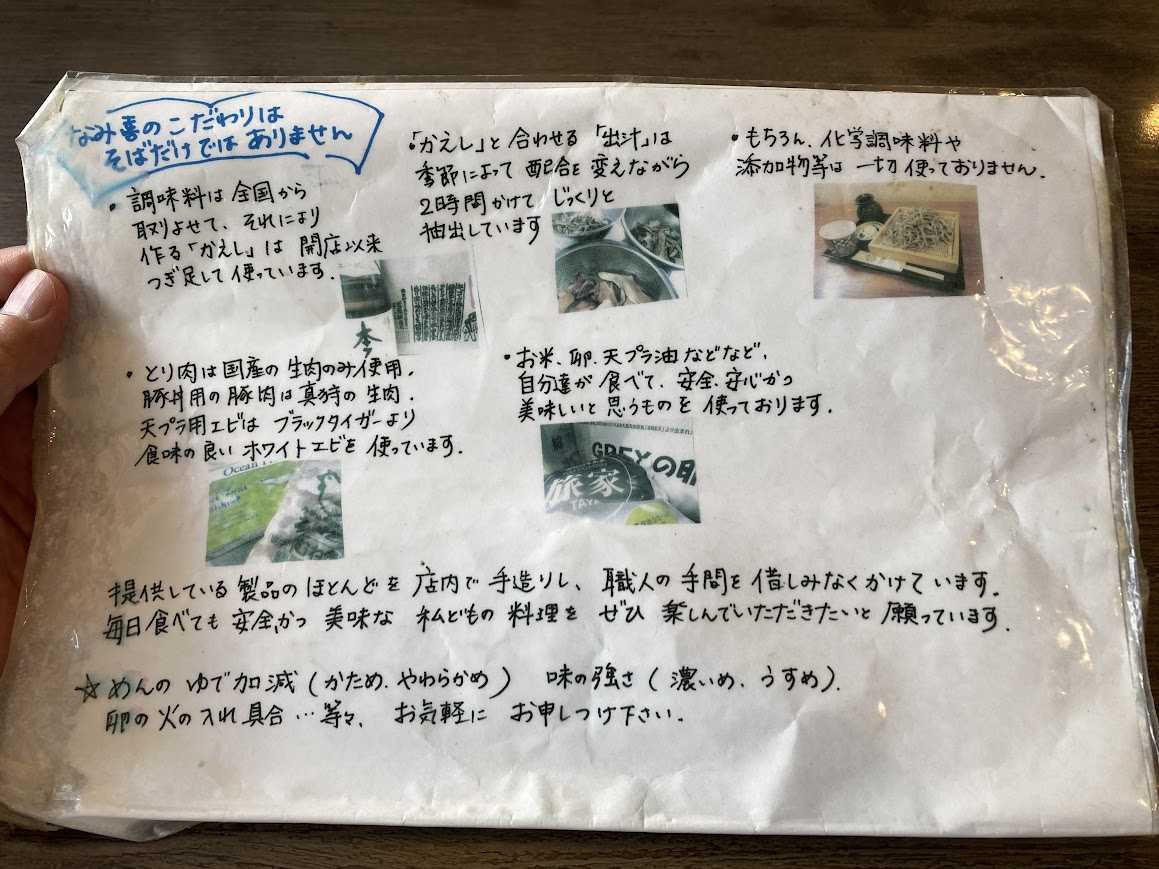 なみ喜のこだわりは
そばだけではありません
・調味料は全国から
取りよせて、それにより
作る「かえし」は開店以来
つぎ足して使っています.
・「かえし」と合わせる「出汁」は
季節によって配合を変えながら
2時間かけてじっくりと
抽出しています
・もちろん、化学調味料や
添加物等は一切使っておりません.
本
・とり肉は国産の生肉のみ使用.
豚丼用の豚肉は真狩の生肉.
天プラ用エビはブラックタイガーより
食味の良いホワイトエビを使っています.
Ocean
・お米、卵、天プラ油などなど、
自分達が食べて、安全、安心かつ
美味しいと思うものを使っております.
GREYの
家
提供している製品のほとんどを店内で手造りし、職人の手間を借しみなくかけています.
毎日食べても安全、かつ美味な私どもの料理をぜひ楽しんでいただきたいと願っています.
☆めんのゆで加減(かため、やわらかめ) 味の強さ(濃いめ、うすめ).
卵の火の入れ具合…等々、お気軽にお申しつけ下さい.